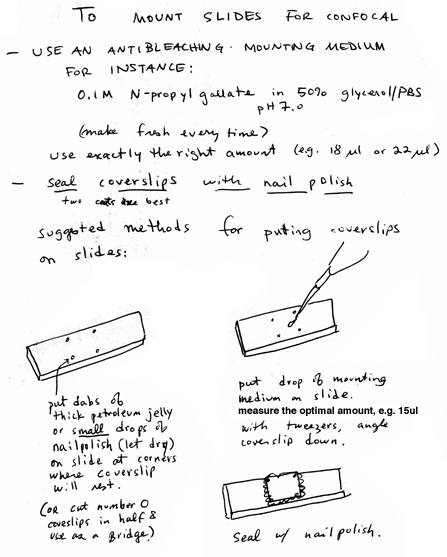 To MOUNT SLIDES FOR CONFOCAL
- USE AN ANTIBLEACHING. MOUNTING MEDIUM
FOR INSTANCE:
0.1M N-propyl gallate in 50% glycerol/PBS
pH 7.0
(make fresh every time)
use exactly the right amount (e.g. 18 µl or 22 µl)
- seal coverslips with nail polish
two coats are best
suggested methods for puting coverslips
on slides:
put dabs of
thick petroleum jelly
or small drops of
nailpolish (let dry)
on slide at corners
where coverslip
will rest.
(or cut number 0
coveslips in half &
use as a bridge)
put drop of mounting
medium on slide.
measure the optimal amount, e.g. 15ul
with tweezers, angle
coverslip down.
seal w/ nail polish.